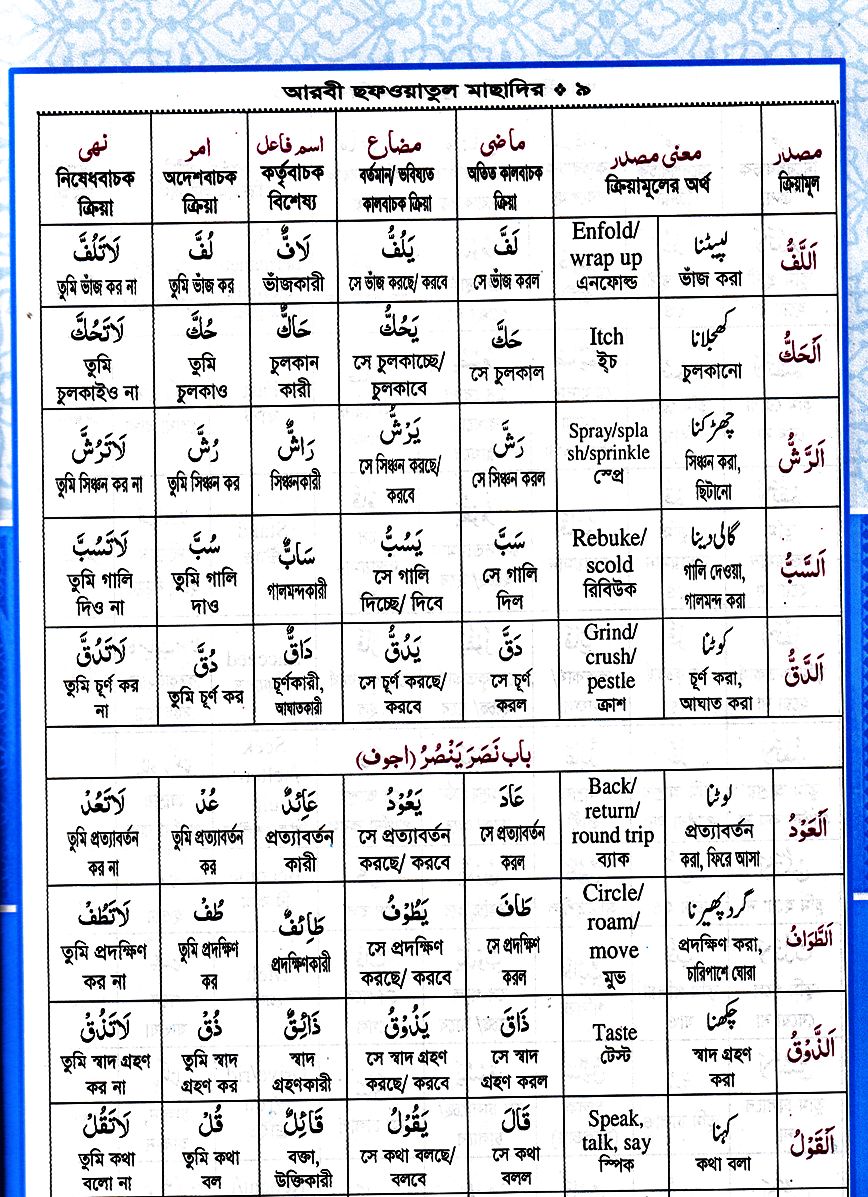 আরবী ছফওয়াতুল মাছাদির ❖ ৯
مصدر ক্রিয়ামূল | معنی مصدر ক্রিয়ামূলের অর্থ | ماضی অতিত কালবাচক ক্রিয়া | مضارع বর্তমান/ ভবিষ্যত কালবাচক ক্রিয়া | اسم فاعل কর্তৃবাচক বিশেষ্য | امر অদেশবাচক ক্রিয়া | نهی নিষেধবাচক ক্রিয়া
اَللَّفُّ | لپیٹنا ভাঁজ করা | Enfold/ wrap up এনফোল্ড | لَفَّ সে ভাঁজ করল | يَلُفُّ সে ভাঁজ করছে/ করবে | لَافٌّ ভাঁজকারী | لُفَّ তুমি ভাঁজ কর | لَاتَلُفَّ তুমি ভাঁজ কর না
اَلْحَكُّ | کھجلانا চুলকানো | Itch ইচ | حَكَّ সে চুলকাল | يَحُكُّ সে চুলকাচ্ছে/ চুলকাবে | حَاكٌّ চুলকান কারী | حُكَّ তুমি চুলকাও | لَاتَحُكَّ তুমি চুলকাইও না
اَلرَّشُّ | چھڑکنا সিঞ্চন করা, ছিটানো | Spray/spla sh/sprinkle স্প্রে | رَشَّ সে সিঞ্চন করল | يَرُشُّ সে সিঞ্চন করছে/ করবে | رَاشٌّ সিঞ্চনকারী | رُشَّ তুমি সিঞ্চন কর | لَاتَرُشَّ তুমি সিঞ্চন কর না
اَلسَّبُّ | گالی دینا গালি দেওয়া, গালমন্দ করা | Rebuke/ scold রিবিউক | سَبَّ সে গালি দিল | يَسُبُّ সে গালি দিচ্ছে/ দিবে | سَابٌّ গালমন্দকারী | سُبَّ তুমি গালি দাও | لَاتَسُبَّ তুমি গালি দিও না
اَلدَّقُّ | کوٹنا চূর্ণ করা, আঘাত করা | Grind/ crush/ pestle ক্রাশ | دَقَّ সে চূর্ণ করল | يَدُقُّ সে চূর্ণ করছে/ করবে | دَاقٌّ চূর্ণকারী, আঘাতকারী | دُقَّ তুমি চূর্ণ কর | لَاتَدُقَّ তুমি চূর্ণ কর না
باب نَصَرَ يَنْصُرُ (اجوف)
اَلْعَوْدُ | لوٹنا প্রত্যাবর্তন করা, ফিরে আসা | Back/ return/ round trip ব্যাক | عَادَ সে প্রত্যাবর্তন করল | يَعُوْدُ সে প্রত্যাবর্তন করছে/ করবে | عَائِدٌ প্রত্যাবর্তন কারী | عُدْ তুমি প্রত্যাবর্তন কর | لَاتَعُدْ তুমি প্রত্যাবর্তন কর না
اَلطَّوَافُ | گرد پھیرنا প্রদক্ষিণ করা, চারিপাশে ঘোরা | Circle/ roam/ move মুভ | طَافَ সে প্রদক্ষিণ করল | يَطُوْفُ সে প্রদক্ষিণ করছে/ করবে | طَائِفٌ প্রদক্ষিণকারী | طُفْ তুমি প্রদক্ষিণ কর | لَاتَطُفْ তুমি প্রদক্ষিণ কর না
اَلذَّوْقُ | چکھنا স্বাদ গ্রহণ করা | Taste টেস্ট | ذَاقَ সে স্বাদ গ্রহণ করল | يَذُوْقُ সে স্বাদ গ্রহণ করছে/ করবে | ذَائِقٌ স্বাদ গ্রহণকারী | ذُقْ তুমি স্বাদ গ্রহণ কর | لَاتَذُقْ তুমি স্বাদ গ্রহণ কর না
اَلْقَوْلُ | کہنا কথা বলা | Speak, talk, say স্পিক | قَالَ সে কথা বলল | يَقُوْلُ সে কথা বলছে/ বলবে | قَائِلٌ বক্তা, উক্তিকারী | قُلْ তুমি কথা বল | لَاتَقُلْ তুমি কথা বলো না